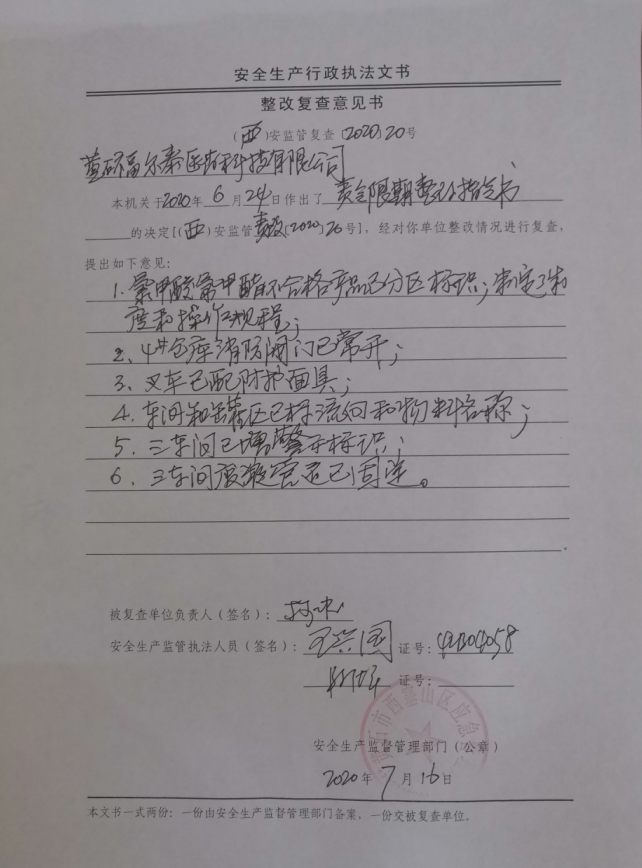 安全生产行政执法文书
整改复查意见书
(西)安监管复查[2020]20号
黄石福尔泰医药科技有限公司
本机关于2020年6月24日作出了责令限期整改指令书
的决定[(西)安监管责改[2020]26号],经对你单位整改情况进行复查,
提出如下意见:
1、氯甲酸氯甲酯不合格产品已分区标识;制定了制
度和操作规程;
2、4#仓库消防阀门已常开;
3、叉车已配防护面具;
4、车间和罐区已标流向和物料名称;
5、三车间已增警示标识;
6、三车间液氮管道已固定。
被复查单位负责人(签名):
安全生产监管执法人员(签名):王兴国 证号:
证号:
安全生产监督管理部门(公章)
2020年7月16日
本文书一式两份:一份由安全生产监督管理部门备案,一份交被复查单位。
黄石市西塞山区应急